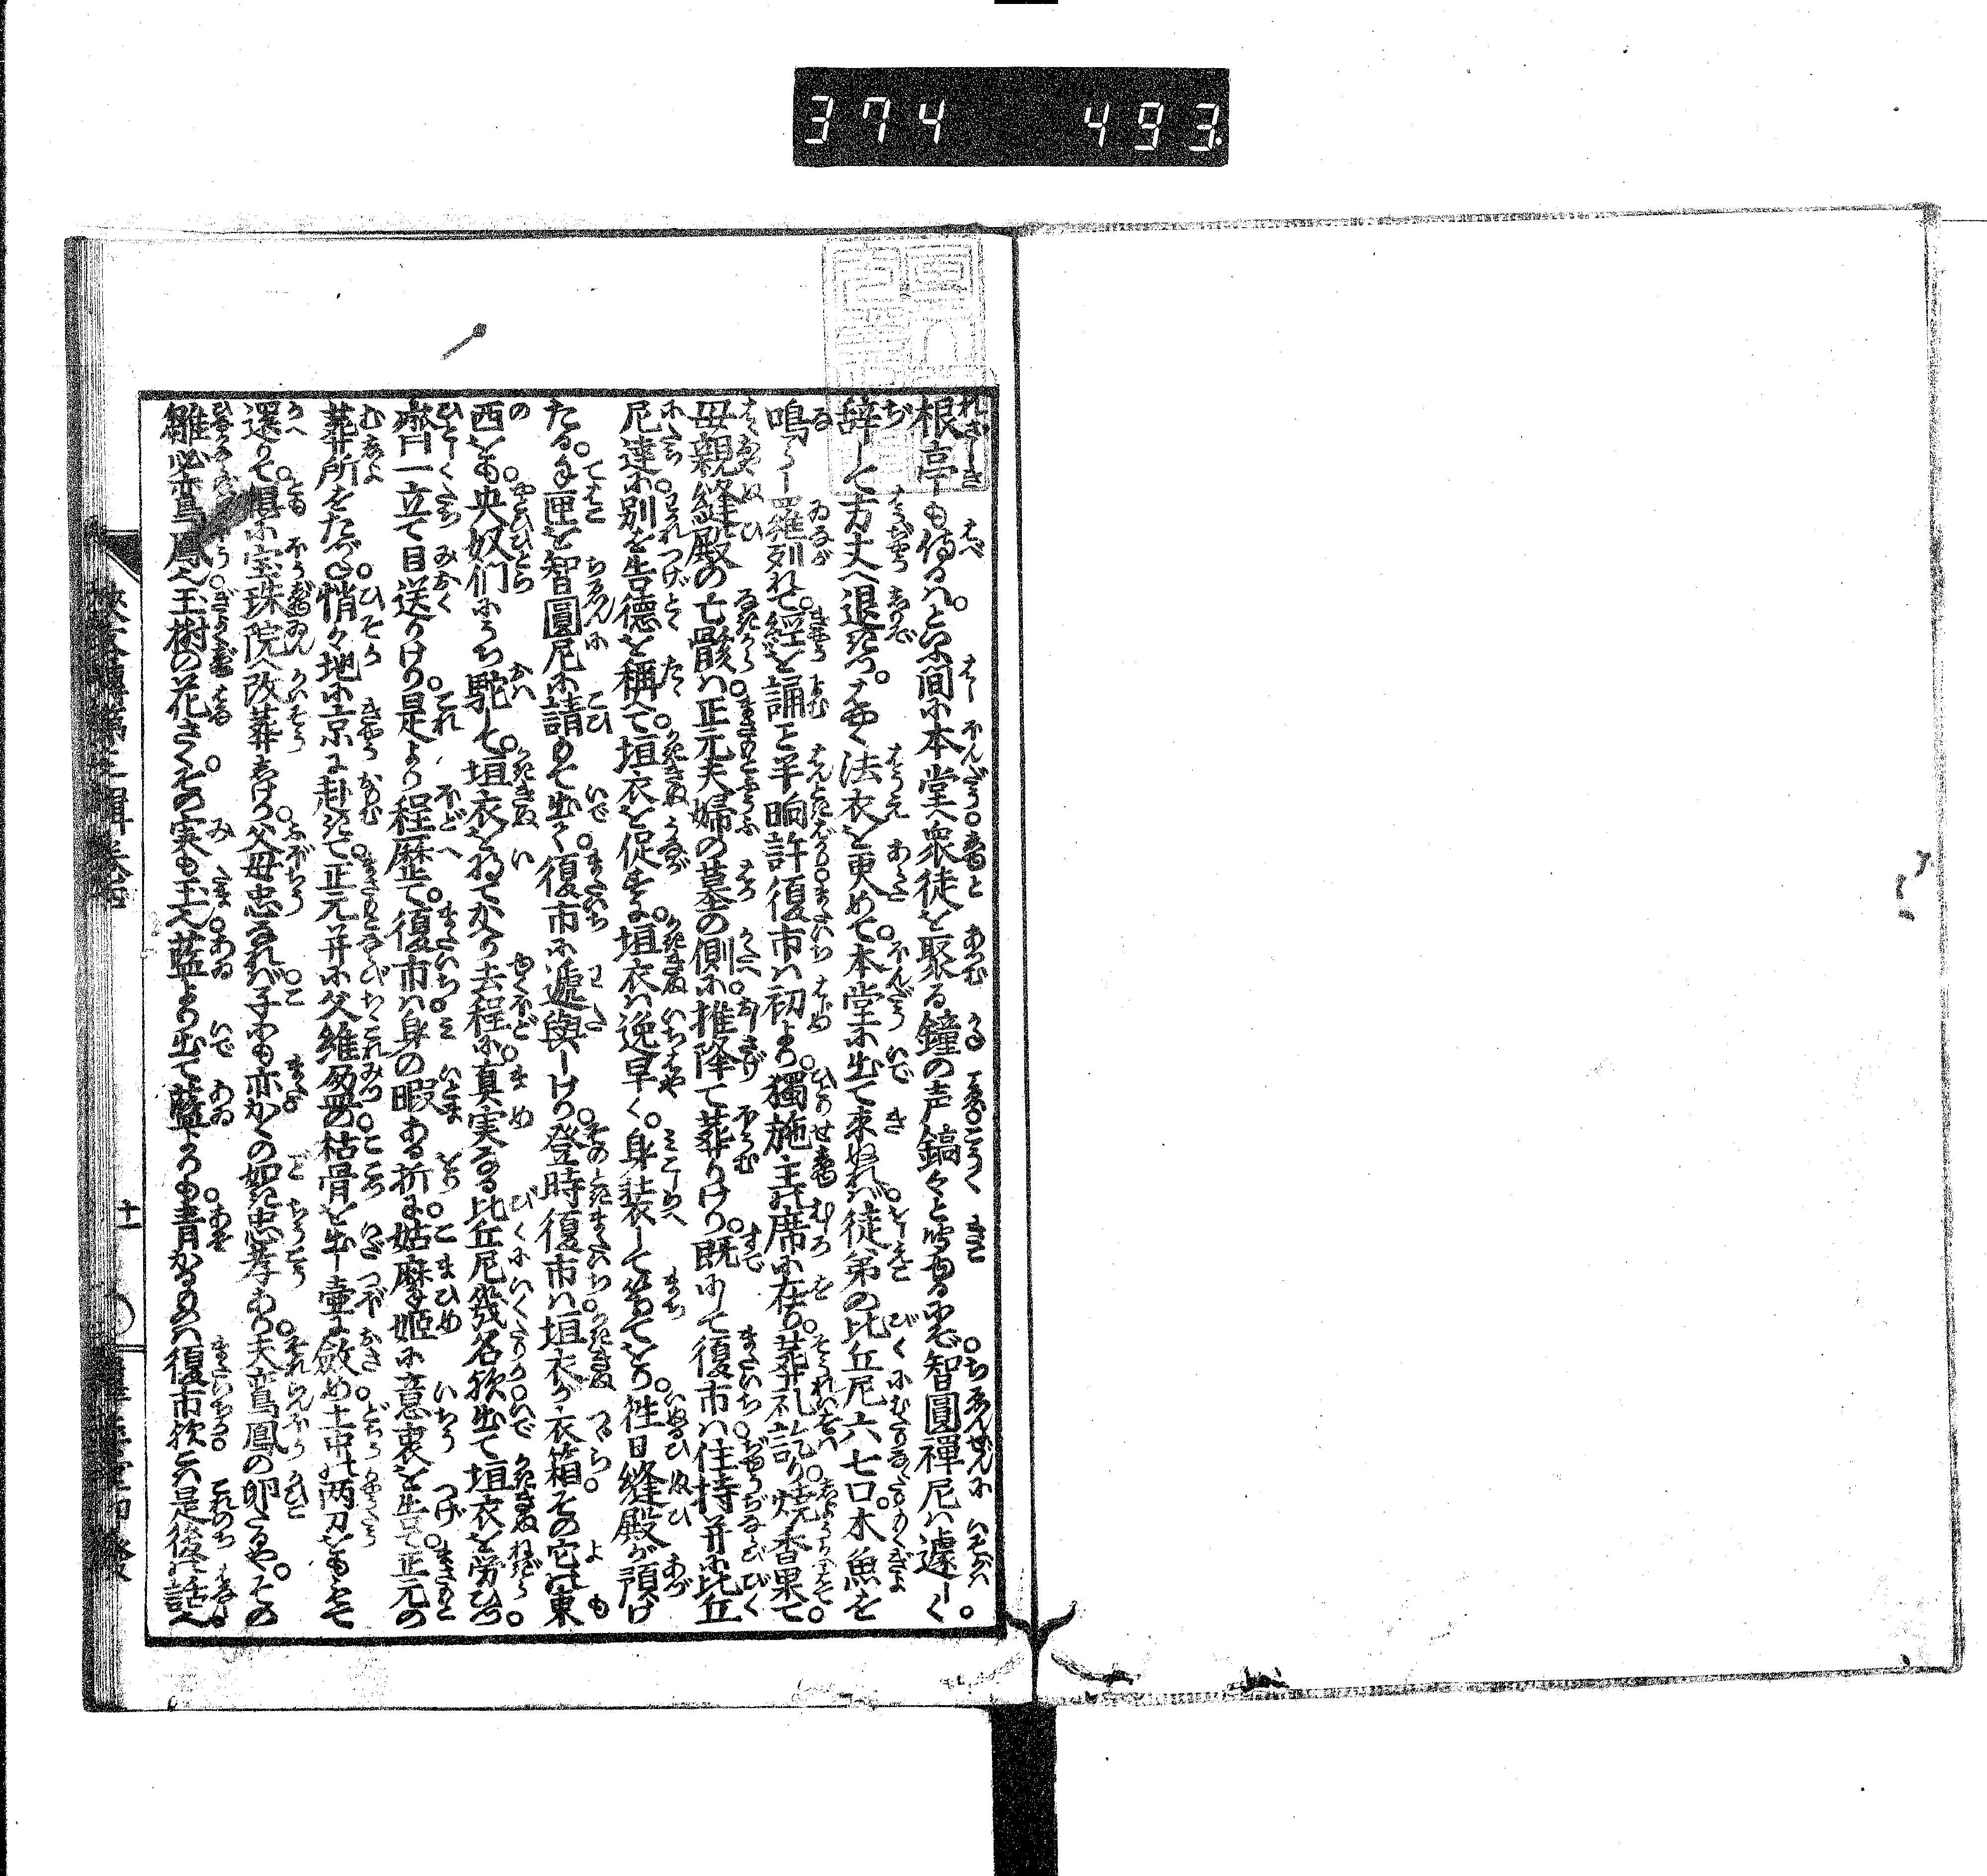 374 493
根亭も侍るハ。といふ間に本堂へ衆徒を聚る鐘の声鎬々と聞る程に智圓禪尼ハ遽しく
辞して方丈へ退きつ。軈て法衣を更めて。本堂に出て来ぬれバ徒弟の比丘尼六七口木魚を
鳴らし羅列れて。經を誦こと半晌許復市ハ初より。獨施主の席に在り。葬礼訖り。燒香果て。
母親縫殿の亡骸ハ正元夫婦の墓の側に推降て葬りけり。既にして復市ハ住持并に比丘
尼達に別を告德を稱へて。垣衣を促すに垣衣ハ逸早く。身裝して等てをり。徃日縫殿が預け
たる。手匣を智圓尼に請もて出て。復市に遞與しけり。登時復市ハ垣衣が衣箱その它の東
西をも央奴們にうち駝して。垣衣を将てかへり去程に真実なる比丘尼幾名欤出て垣衣を労ひつ
齊一立て目送りけり。是より程歴て。復市ハ身の暇ある折に姑麻姫に意衷を告て。正元の
葬所をたづね。悄々地に京に赴きて。正元并に父維盈の枯骨を出し壷に斂め土中の両刀をももて
還りて。俱に宝珠院へ改葬しけり。父母忠なれバ子にも亦かくの如き忠孝あり。夫鸞鳳の卵たるや。その
雛必鸞鳳へ。玉樹の花さくその実も玉へ。藍より出て藍よりも青かるものハ復市欤。こハ是後の話へ。
十一